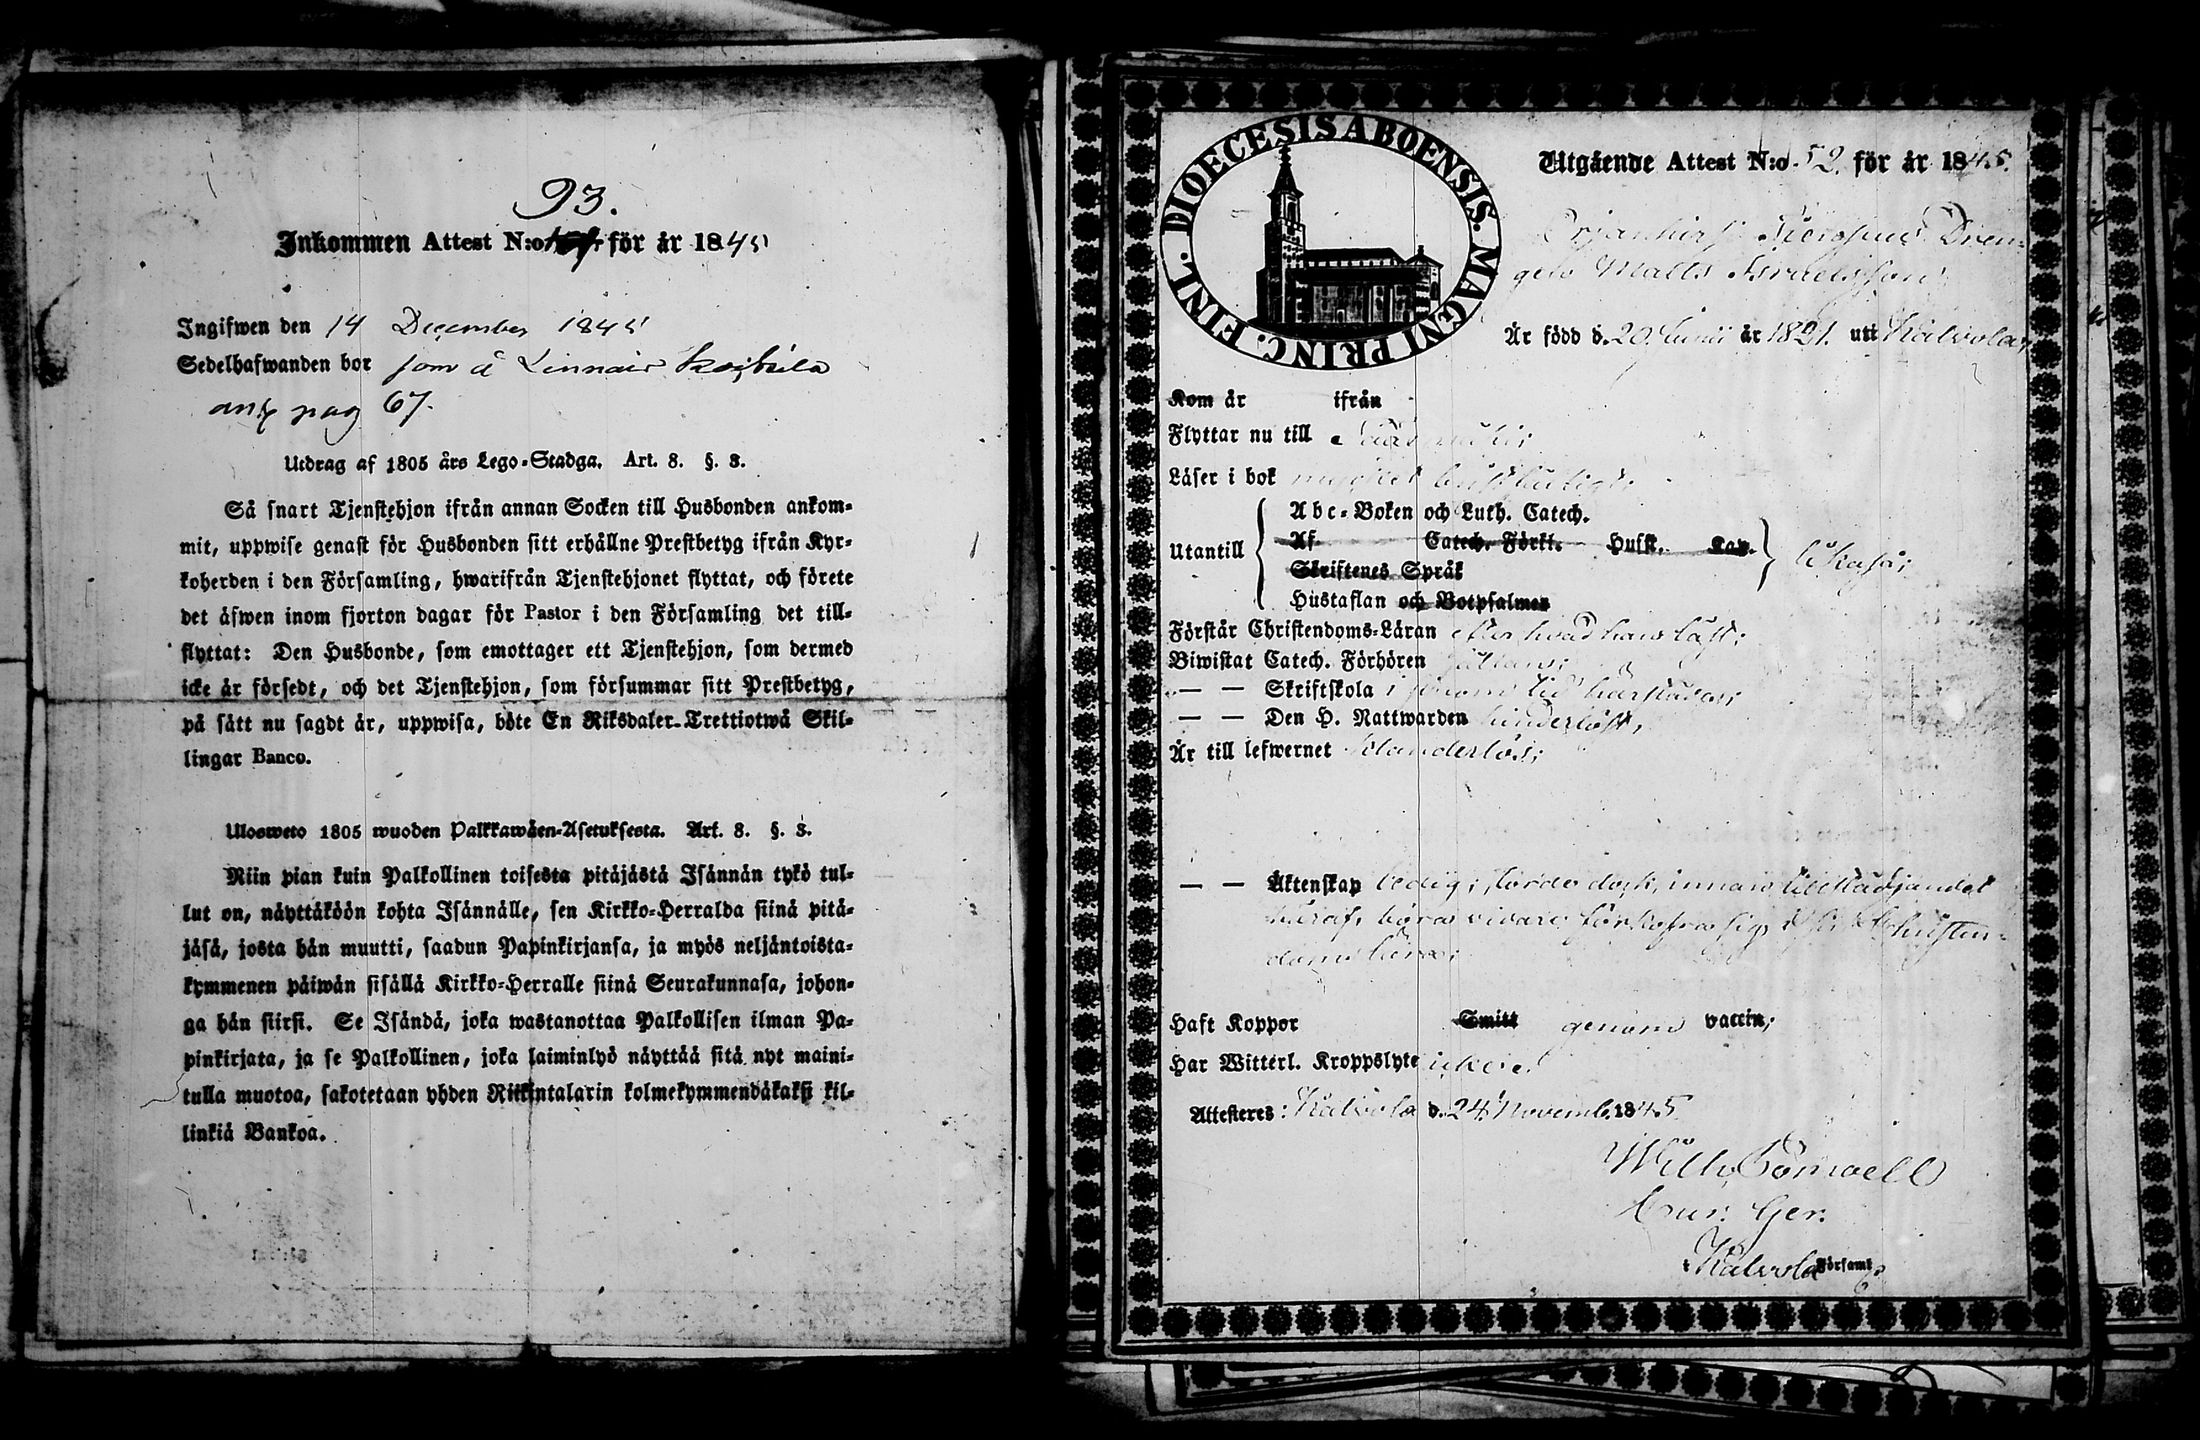 93.
Inkommen Attest N:o för år 1845
Ingifwen den 14 December 1845
Sedelhafwanden bor som å Linnais
ant pag 67.
Utdrag af 1805 års Lego-Stadga. Art. 8. §. 3.
Så snart Tjenstehjon ifrån annan Socken till Husbonden ankom-
mit, uppwise genast för Husbonden sitt erhållne Prestbetyg ifrån Kyr-
koherden i den Församling, hwarifrån Tjenstehjonet flyttat, och förete
det äfwen inom fjorton dagar för Pastor i den Församling det till-
flyttat: Den Husbonde, som emottager ett Tjenstehjon, som dermed
icke är försedt, och det Tjenstehjon, som försummar sitt Prestbetyg,
på sätt nu sagdt är, uppwisa, böte En Riksdaler Trettiotwå Skil-
lingar Banco.
Ulosweto 1805 wuoden Palkkawäen-Asetuksesta. Art. 8. §. 3.
Niin pian kuin Palkollinen toisesta pitäjästä Isännän tykö tul-
lut on, näyttäköön kohta Isännälle, sen Kirkko-Herralda siinä pitä-
jäsä, josta hän muutti, saadun Papinkirjansa, ja myös neljäntoista-
kymmenen päiwän sisällä Kirkko-Herralle siinä Seurakunnasa, johon-
ga hän siirsi. Se Isändä, joka wastanottaa Palkollisen ilman Pa-
pinkirjata, ja se Palkollinen, joka laiminlyö näyttää sitä nyt maini-
tulla muotoa, sakotetaan yhden Riikintalarin kolmekymmendäkaksi kil-
linkiä Bankoa.
DIOECESIS ABOENSIS. MAGNI PRINC. FINL.
Utgående Attest N:o 52. för år 1845.
Drän-
gen Matts Israelsson
Är född d. 20 Junii år 1821. uti Kalvola,
Kom år ifrån
Flyttar nu till
Läser i bok
Utantill
Abc-Boken och Luth. Catech.
Af Catech. Förkl. Husft. Kap.
Skriftenes Språk
Hustaflan och Botpsalmen
likaså;
Förstår Christendoms-Läran efter hvad han läst;
Biwistat Catech. Förhören
— — Skriftskola
— — Den H. Nattwarden
Är till lefwernet klanderlös;
— — Äktenskap ledig; torde dock, innan
häraf, böra vidare förkofra sig i sin Christen-
doms lära;
Haft Koppor Smitt genom vaccin;
Har Witterl. Kroppslyte icke.
Attesteres: Kalvola d. 24 Novemb. 1845
Wilh.
i Kalvola Församl.